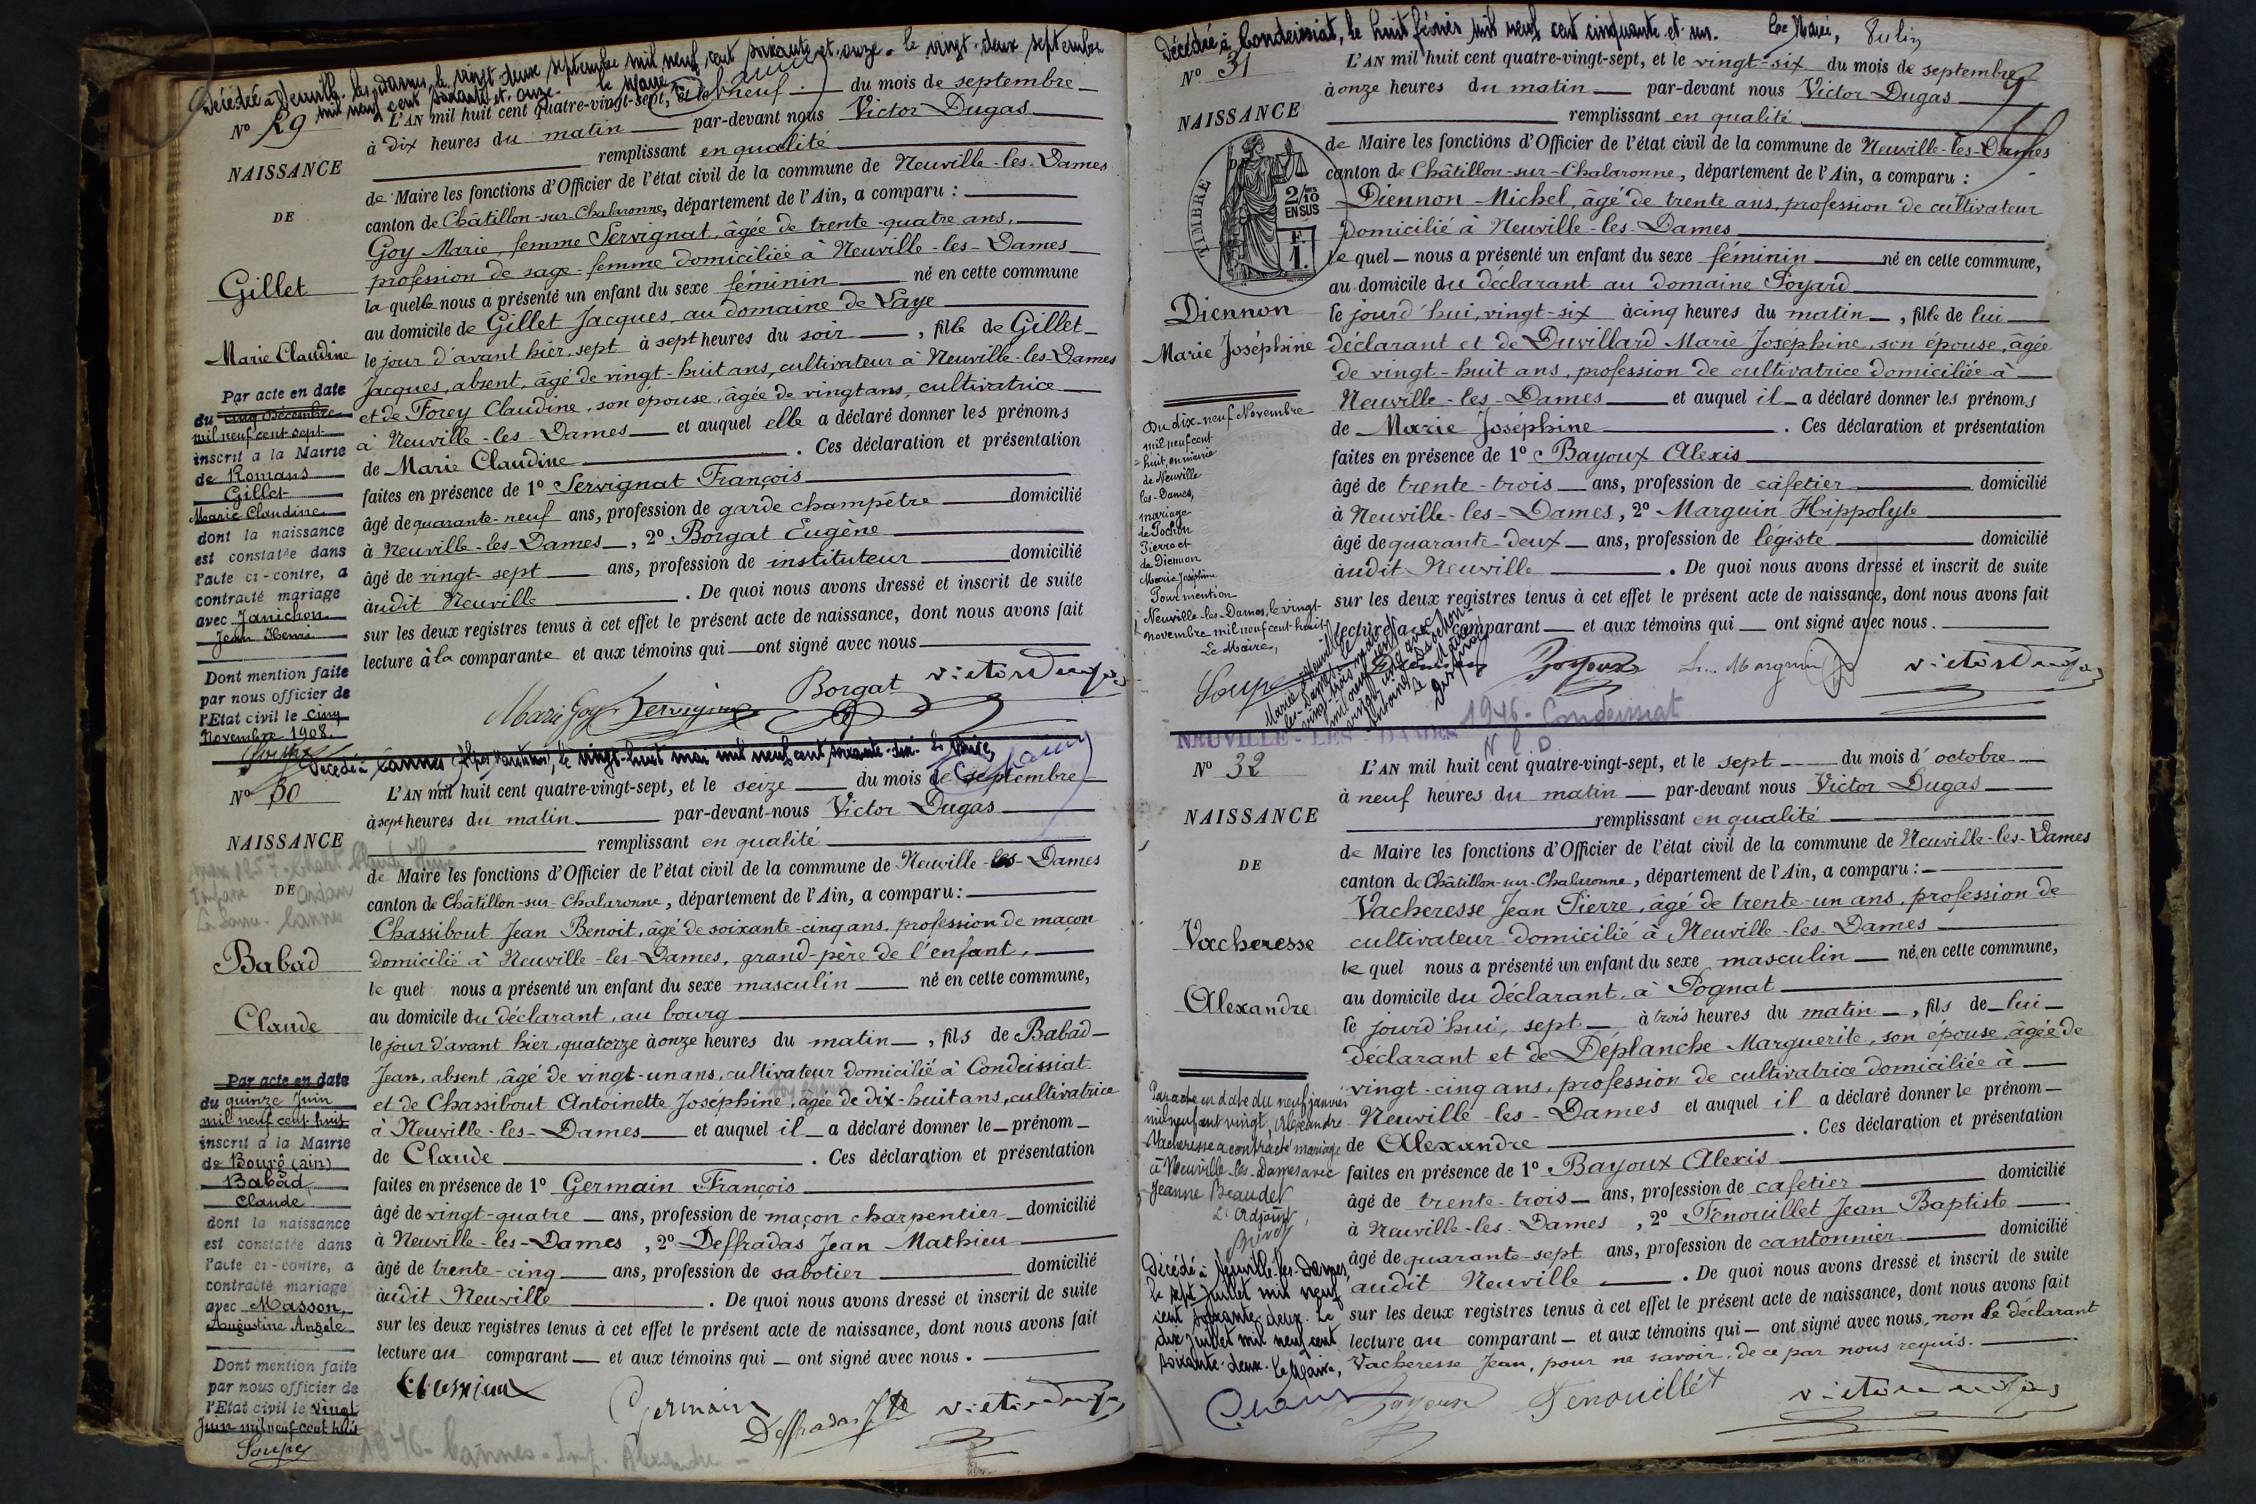 Décédée à Neuville-les-Dames, le vingt-deux septembre mil neuf cent soixante-et-onze. le vingt-deux septembre
mil neuf cent soixante-et-onze. le Maire,
N° 29
L'AN mil huit cent quatre-vingt-sept, et le neuf du mois de septembre
à dix heures du matin par-devant nous Victor Dugas
NAISSANCE
remplissant en qualité
de Maire les fonctions d'Officier de l'état civil de la commune de Neuville-les-Dames
DE
canton de Châtillon-sur-Chalaronne, département de l'Ain, a comparu :
Goy Marie femme Servignat, âgée de trente-quatre ans,
profession de sage-femme domiciliée à Neuville-les-Dames
Gillet
la quelle nous a présenté un enfant du sexe féminin né en cette commune
au domicile de Gillet Jacques, au domaine de Laye
Marie Claudine
le jour d'avant hier, sept à sept heures du soir, fille de Gillet
Jacques, absent, âgé de vingt-huit ans, cultivateur à Neuville-les-Dames
et de Forey Claudine, son épouse, âgée de vingt ans, cultivatrice
à Neuville-les-Dames et auquel elle a déclaré donner les prénoms
de Marie Claudine. Ces déclaration et présentation
faites en présence de 1° Servignat François
âgé de quarante-neuf ans, profession de garde champêtre domicilié
à Neuville-les-Dames, 2° Borgat Eugène
âgé de vingt-sept ans, profession de instituteur domicilié
audit Neuville. De quoi nous avons dressé et inscrit de suite
sur les deux registres tenus à cet effet le présent acte de naissance, dont nous avons fait
lecture à la comparante et aux témoins qui ont signé avec nous
Par acte en date
du cinq Décembre
mil neuf cent sept
inscrit à la Mairie
de Romans
Gillet
Marie Claudine
dont la naissance
est constatée dans
l'acte ci-contre, a
contracté mariage
avec Janichon
Jean Henri
Dont mention faite
par nous officier de
l'Etat civil le cinq
Novembre 1908.
Soupe
Marie Goy Servignat Borgat Victor Dugas
Décédé à Cannes (Alpes Maritimes), le vingt-huit mai mil neuf cent soixante-dix. Le Maire,
N° 30
L'AN mil huit cent quatre-vingt-sept, et le seize du mois de septembre
à sept heures du matin par-devant-nous Victor Dugas
NAISSANCE
remplissant en qualité
de Maire les fonctions d'Officier de l'état civil de la commune de Neuville-les-Dames
DE
canton de Châtillon-sur-Chalaronne, département de l'Ain, a comparu :
Chassibout Jean Benoit, âgé de soixante-cinq ans, profession de maçon
Babad
domicilié à Neuville-les-Dames, grand-père de l'enfant,
le quel nous a présenté un enfant du sexe masculin né en cette commune,
Claude
au domicile du déclarant, au bourg
le jour d'avant hier, quatorze à onze heures du matin, fils de Babad
Jean, absent, âgé de vingt-un ans, cultivateur domicilié à Condeissiat
et de Chassibout Antoinette Josephine, âgée de dix-huit ans, cultivatrice
à Neuville-les-Dames et auquel il a déclaré donner le prénom
de Claude. Ces déclaration et présentation
faites en présence de 1° Germain François
âgé de vingt-quatre ans, profession de maçon charpentier domicilié
à Neuville-les-Dames, 2° Deffradas Jean Mathieu
âgé de trente-cinq ans, profession de sabotier domicilié
audit Neuville. De quoi nous avons dressé et inscrit de suite
sur les deux registres tenus à cet effet le présent acte de naissance, dont nous avons fait
lecture au comparant et aux témoins qui ont signé avec nous.
Par acte en date
du quinze Juin
mil neuf cent huit
inscrit à la Mairie
de Bourg (ain)
Babad
Claude
dont la naissance
est constatée dans
l'acte ci-contre, a
contracté mariage
avec Masson
Augustine Angele
Dont mention faite
par nous officier de
l'Etat civil le vingt
Juin mil neuf cent huit
Soupe
Germain Deffradas Victor Dugas
1946 - Cannes - Alexandre
Décédée à Condeissiat, le huit février mil neuf cent cinquante et un. Le Maire,
N° 31
L'AN mil huit cent quatre-vingt-sept, et le vingt-six du mois de septembre
à onze heures du matin par-devant nous Victor Dugas
NAISSANCE
remplissant en qualité
de Maire les fonctions d'Officier de l'état civil de la commune de Neuville-les-Dames
canton de Châtillon-sur-Chalaronne, département de l'Ain, a comparu :
TIMBRE
2/10
EN SUS
Diennon Michel, âgé de trente ans, profession de cultivateur
domicilié à Neuville-les-Dames
le quel nous a présenté un enfant du sexe féminin né en cette commune,
au domicile du déclarant au domaine Poyard
Diennon
le jourd'hui, vingt-six à cinq heures du matin, fille de lui
Marie Joséphine
déclarant et de Duvillard Marie Joséphine, son épouse, âgée
de vingt-huit ans, profession de cultivatrice domiciliée à
Neuville-les-Dames et auquel il a déclaré donner les prénoms
de Marie Joséphine. Ces déclaration et présentation
faites en présence de 1° Bayoux Alexis
âgé de trente-trois ans, profession de cafetier domicilié
à Neuville-les-Dames, 2° Marguin Hippolyte
âgé de quarante-deux ans, profession de légiste domicilié
audit Neuville. De quoi nous avons dressé et inscrit de suite
sur les deux registres tenus à cet effet le présent acte de naissance, dont nous avons fait
lecture au comparant et aux témoins qui ont signé avec nous.
Du dix-neuf Novembre
mil neuf cent
huit, en mairie
de Neuville
les-Dames,
mariage
de Pochon
Pierre et
de Diennon
Marie Joséphine
Pour mention
Neuville-les-Dames, le vingt
novembre mil neuf cent huit
Le Maire,
Soupe
Bayoux Marguin Victor Dugas
1946 - Condeissiat
NEUVILLE-LES-DAMES
N° 32
L'AN mil huit cent quatre-vingt-sept, et le sept du mois d'octobre
à neuf heures du matin par-devant nous Victor Dugas
NAISSANCE
remplissant en qualité
de Maire les fonctions d'Officier de l'état civil de la commune de Neuville-les-Dames
DE
canton de Châtillon-sur-Chalaronne, département de l'Ain, a comparu :
Vacheresse Jean Pierre, âgé de trente-un ans, profession de
Vacheresse
cultivateur domicilié à Neuville-les-Dames
le quel nous a présenté un enfant du sexe masculin né en cette commune,
Alexandre
au domicile du déclarant, à Pognat
le jourd'hui, sept à trois heures du matin, fils de lui
déclarant et de Déplanche Marguerite, son épouse, âgée de
vingt-cinq ans, profession de cultivatrice domiciliée à
Neuville-les-Dames et auquel il a déclaré donner le prénom
de Alexandre. Ces déclaration et présentation
faites en présence de 1° Bayoux Alexis
âgé de trente-trois ans, profession de cafetier domicilié
à Neuville-les-Dames, 2° Fenouillet Jean Baptiste
âgé de quarante-sept ans, profession de cantonnier domicilié
audit Neuville. De quoi nous avons dressé et inscrit de suite
sur les deux registres tenus à cet effet le présent acte de naissance, dont nous avons fait
lecture au comparant et aux témoins qui ont signé avec nous, non le déclarant
Vacheresse Jean, pour ne savoir, de ce par nous requis.
Par acte en date du neuf janvier
mil neuf cent vingt, Alexandre
Vacheresse a contracté mariage
à Neuville-les-Dames avec
Jeanne Beaudet
L'Adjoint,
Décédé à Neuville-les-Dames,
le sept juillet mil neuf
cent soixante-deux. Le
dix juillet mil neuf cent
soixante-deux. le Maire,
Bayoux Fenouillet Victor Dugas